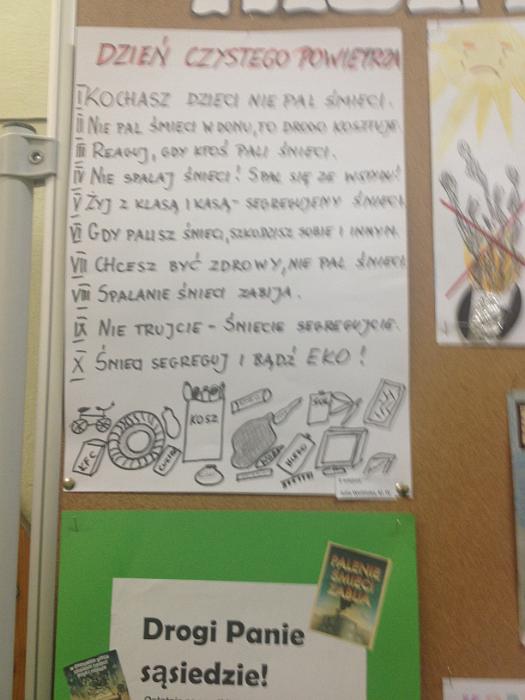 DZIEŃ CZYSTEGO POWIETRZA
I KOCHASZ DZIECI NIE PAL ŚMIECI.
II NIE PAL ŚMIECI W DOMU, TO DROGO KOSZTUJE.
III REAGUJ, GDY KTOŚ PALI ŚMIECI.
IV NIE SPALAJ ŚMIECI! SPAL SIĘ ZE WSTYDU!
V ŻYJ Z KLASĄ I KASĄ - SEGREGUJEMY ŚMIECI
VI GDY PALISZ ŚMIECI, SZKODZISZ SOBIE I INNYM.
VII CHCESZ BYĆ ZDROWY, NIE PAL ŚMIECI
VIII SPALANIE ŚMIECI ZABIJA.
IX NIE TRUJCIE - ŚMIECIE SEGREGUJCIE.
X ŚMIECI SEGREGUJ I BĄDŹ EKO!
KOSZ
KFC
PALENIE
ŚMIECI
ZABIJA
Drogi Panie
sąsiedzie!